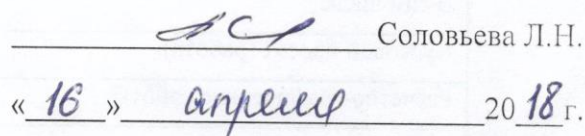 Соловьева Л.Н.
« 16 » апреля 2018 г.